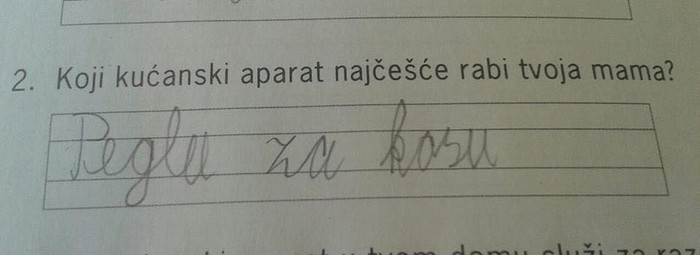 2. Koji kućanski aparat najčešće rabi tvoja mama?
Peglu za kosu
tvom domu služi za raz